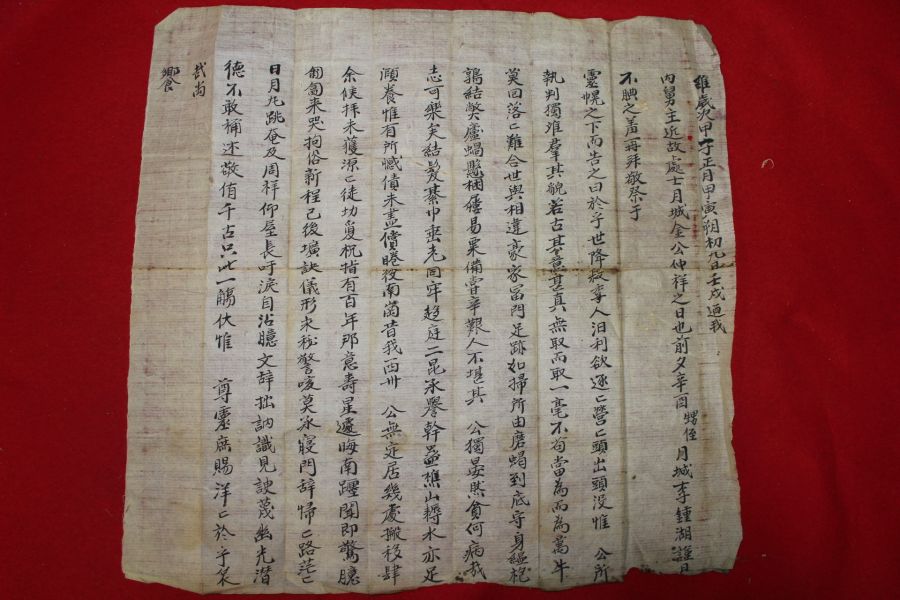 維歲次甲子正月甲寅朔初九日壬戌通我
內舅主近故處士月城金公仲祥之日也前夕辛酉甥侄月城李鍾湖謹具
不腆之羞再拜敬祭于
靈幌之下而告之曰於乎世降叔季人汨利欲逐亡營亡頭出頭沒惟 公所
執判獨准群其貌若古其意甚真無取而取一毫不苟當為而為萬牛
莫回落亡難合世與相違豪家富門足跡如掃所由磨蝎到底守身縕袍
鶉結獘廬蝸懸稛屨易粟備嘗辛艱人不堪其 公獨晏然貧何病哉
志可樂矣結髮綦巾垂老同牢趍庭二昆承譽幹蠱樵山耨水亦足
頤養惟有所憾債未盡償睠彼南菌昔我西卅 公無定居幾處搬移肆
余候拜未獲源亡徒切敻祝指有百年那意壽星遽晦南躔聞即驚膽
匍匐來哭拘俗新程已後壙訣儀形永秘警咳莫承寢門辞歸亡路茫亡
日月丸跳奄及周祥仰屋長吁淚自沾臆文辞拙訥識見謏蔑幽光潛
德不敢稱述敬侑千古只此一觴伏惟 尊靈庶賜洋亡於乎哀
哉尚
饗